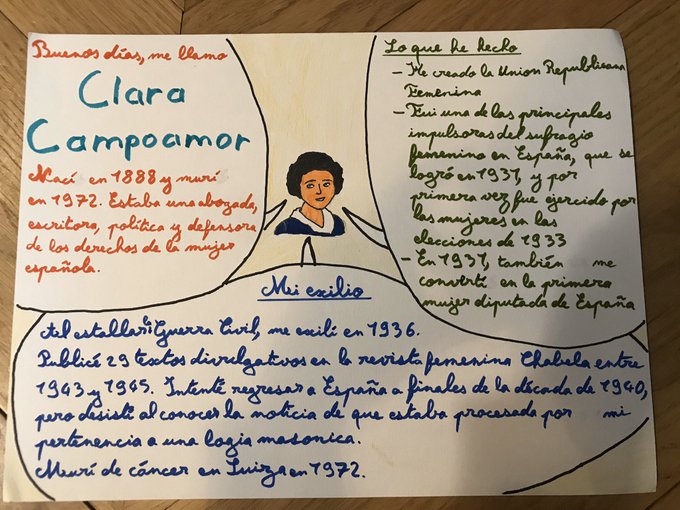 Buenos días, me llamo
Clara
Campoamor
Nací en 1888 y murí
en 1972. Estaba una abogada,
escritora, política y defensora
de los derechos de la mujer
española.
Lo que he hecho
- He creado la Union Republicana
Femenina
- Fui una de las principales
impulsoras del sufragio
femenino en España, que se
logró en 1931, y por
primera vez fue ejercido por
las mujeres en las
elecciones de 1933
- En 1931, también me
convirtí en la primera
mujer diputada de España
Mi exilio
Al estallar la Guerra Civil, me exilí en 1936.
Publicé 29 textos divulgativos en la revista femenina Chabela entre
1943 y 1945. Intenté regresar a España a finales de la década de 1940,
pero desistí al conocer la noticia de que estaba procesada por mi
pertenencia a una logia masonica.
Murí de cáncer en Suiza en 1972.